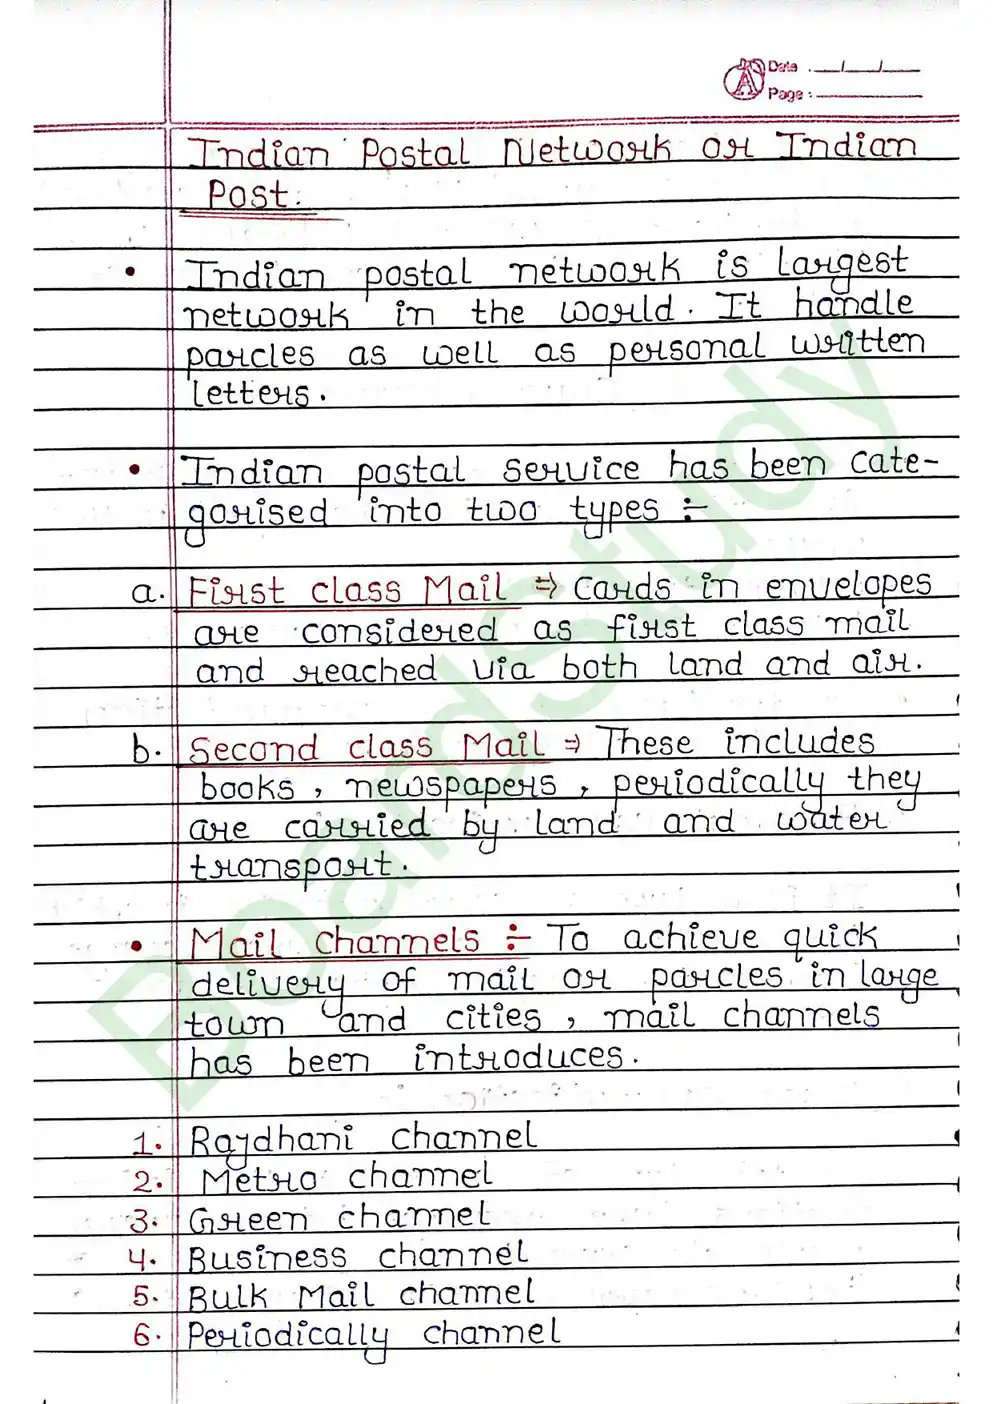 Date : __/__/__
Page :
Indian Postal Network or Indian
Post.
• Indian postal network is largest
network in the world. It handle
parcles as well as personal written
letters.
• Indian postal service has been cate-
gorised into two types :-
a. First class Mail ⇒ Cards in envelopes
are considered as first class mail
and reached via both land and air.
b. Second class Mail ⇒ These includes
books, newspapers, periodically they
are carried by land and water
transport.
• Mail Channels :- To achieve quick
delivery of mail or parcles in large
town and cities, mail channels
has been introduces.
1. Rajdhani channel
2. Metro channel
3. Green channel
4. Business channel
5. Bulk Mail channel
6. Periodically channel
BoardStudy